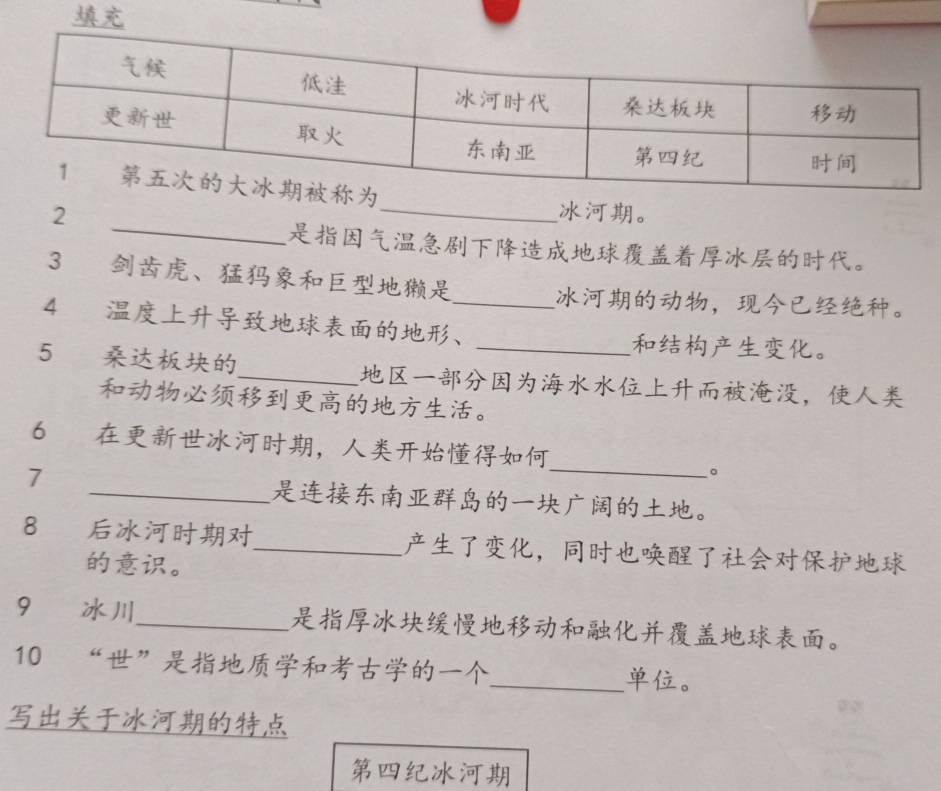 填充
气候 低洼 冰河时代 桑达板块 移动
更新世 取火 东南亚 第四纪 时间
1 第五次的大冰期被称为__________冰河期。
2 __________是指因气温急剧下降造成地球覆盖着厚冰层的时代。
3 剑齿虎、猛犸象和巨型地獭是__________冰河期的动物，现今已经绝种。
4 温度上升导致地球表面的地形、__________和结构产生变化。
5 桑达板块的__________地区一部分因为海水水位上升而被淹没，使人类
和动物必须移到更高的地方生活。
6 在更新世冰河时期，人类开始懂得如何__________。
7 __________是连接东南亚群岛的一块广阔的土地。
8 后冰河时期对__________产生了变化，同时也唤醒了社会对保护地球
的意识。
9 冰川__________是指厚冰块缓慢地移动和融化并覆盖地球表面。
10 “世”是指地质学和考古学的一个__________单位。
写出关于冰河期的特点
第四纪冰河期